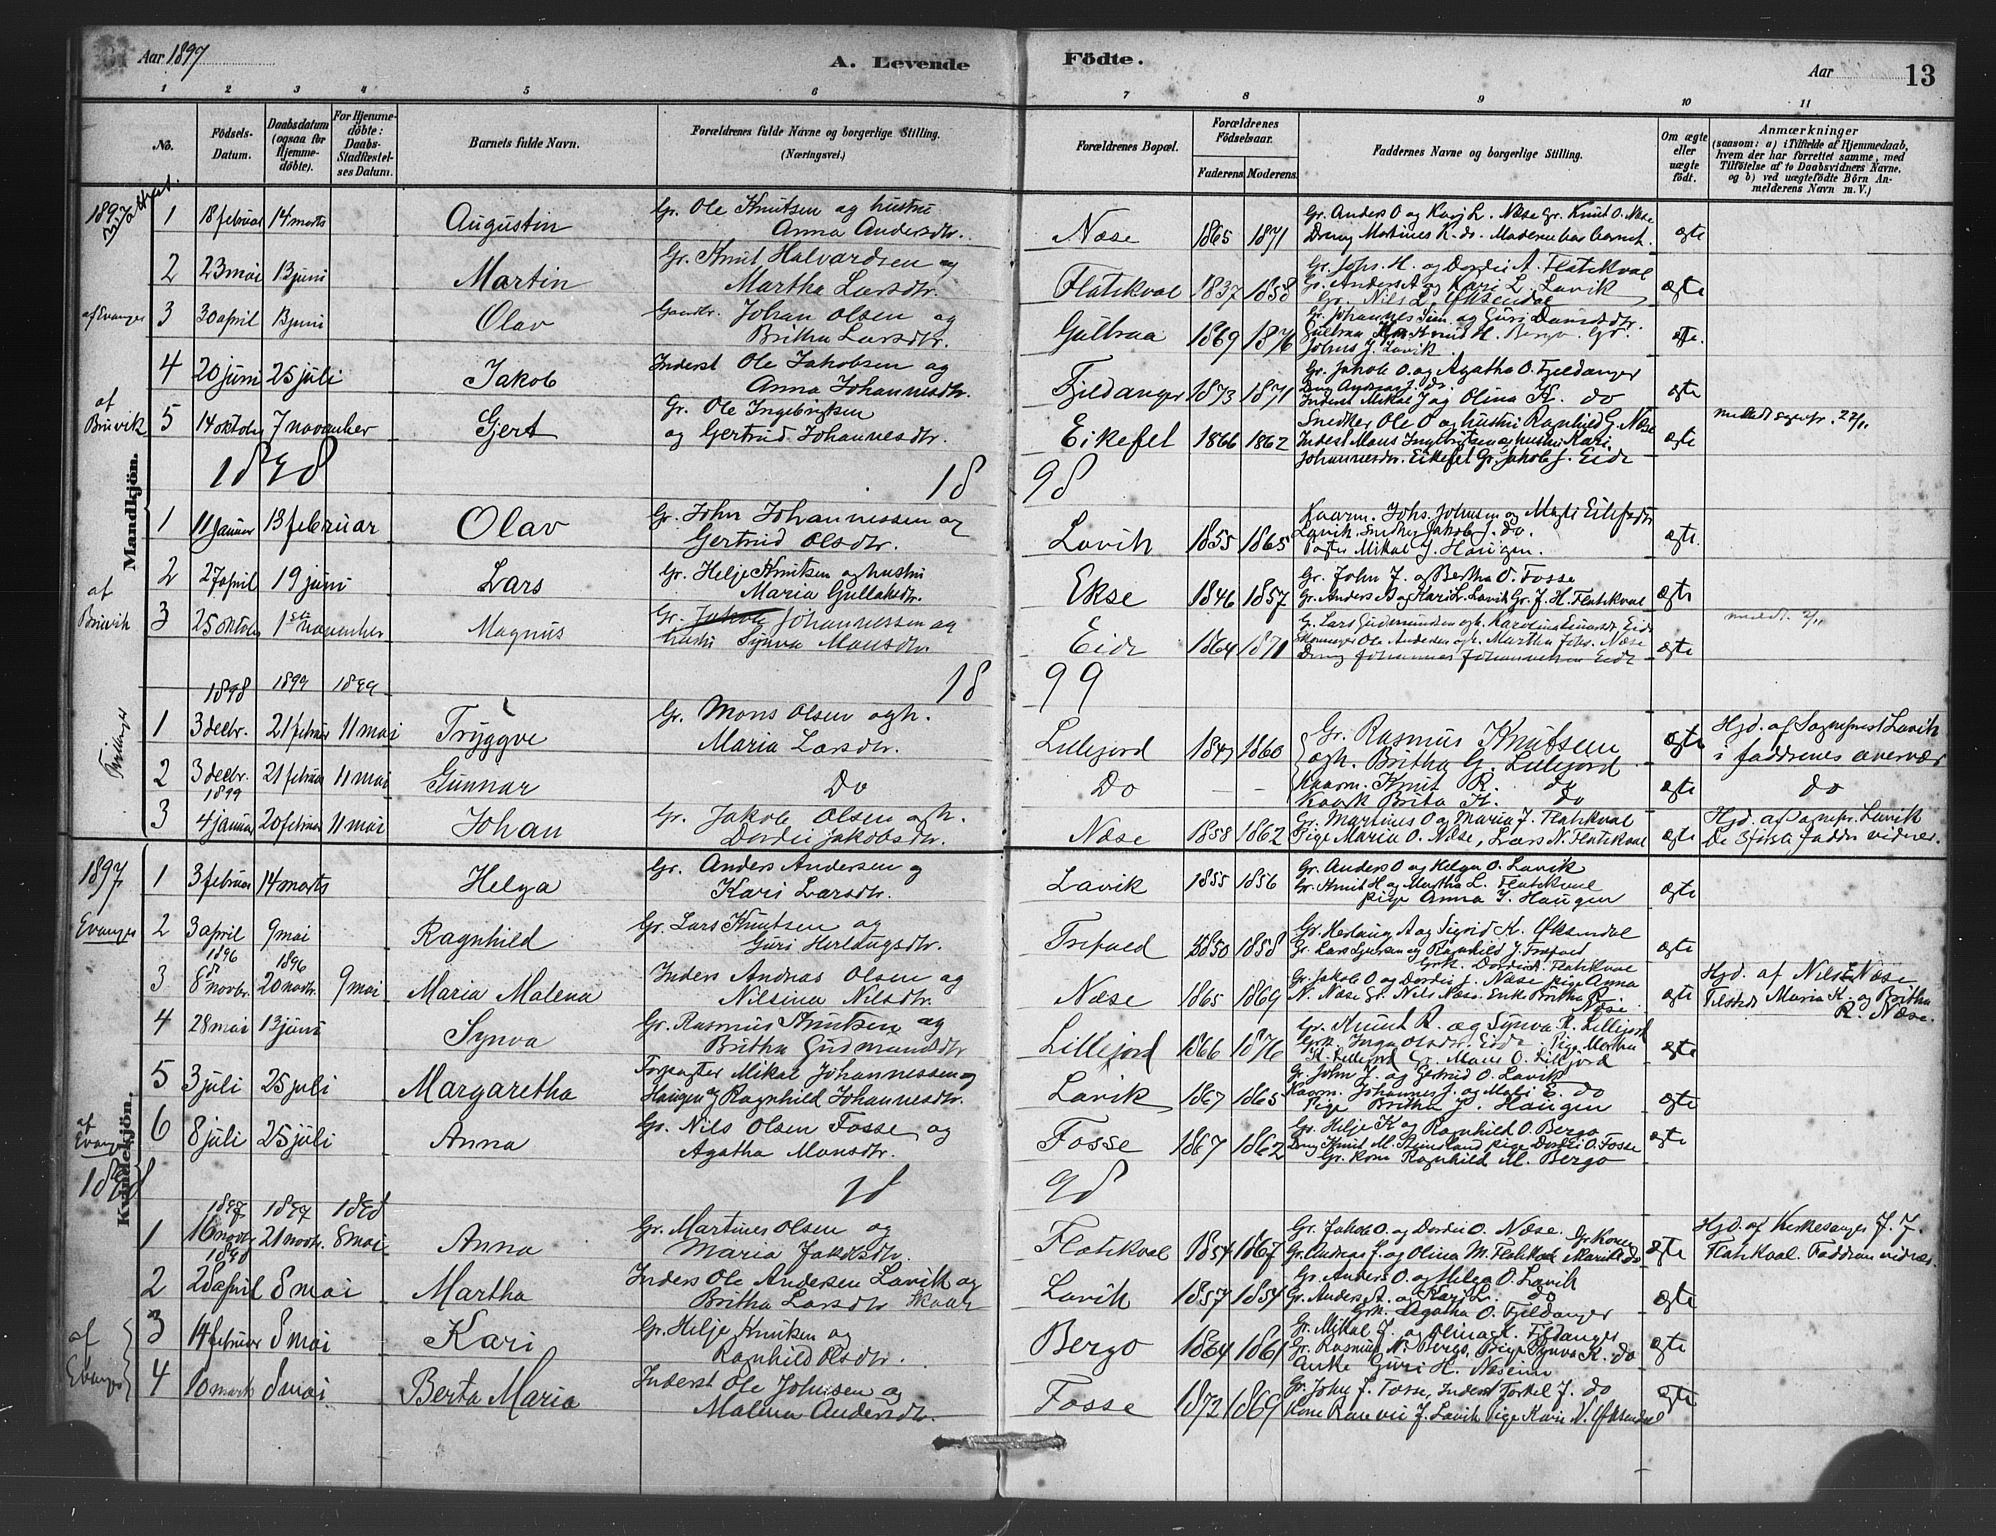 Aar 1897
A. Levende
Födte.
Aar
13
1 2 3 4 5 6 7 8 9 10 11
No.
Födsels-Datum.
Daabsdatum (ogsaa for Hjemmedöbte).
For Hjemmedöbte: Daabs-Stadfæstelses Datum.
Barnets fulde Navn.
Forældrenes fulde Navne og borgerlige Stilling.
(Næringsvei.)
Forældrenes Bopæl.
Forældrenes Födselsaar.
Faderens Moderens
Faddernes Navne og borgerlige Stilling.
Om ægte eller uægte födt.
Anmærkninger
(saasom: a) i Tilfælde af Hjemmedaab, hvem der har forrettet samme, med Tilföielse af to Daabsvidners Navne. og b) ved uægtefödte Börn Anmelderens Navn m. V.)
Mandkjön.
1897
1 18 februar 14 marts Augustin Gr. Ole Knutsen og hustru
Anna Andersdtr. Næse 1865 1871 Gr. Anders O og Kari L. Næse Gr. Knut O. Næse
Dreng Martines K. do. Moderen bar barnet. ægte
2 23 mai 13 juni Martin Gr. Knut Halvardsen og
Martha Larsdtr. Flatekval 1837 1858 Gr. Johs. H. og Dordei A. Flatekval
Gr. Anders A og Kari L. Lavik
Gr. Nils L. Øksendal ægte
af Evanger 3 30 april 13 juni Olav Johan Olsen og
Britha Larsdtr. Gulbraa 1869 1876 Gr. Johannes Sim. og Guri Danielsdtr.
Gulbraa Knud H. Bergo Gr.
Johs J. Lavik ægte
4 20 juni 25 juli Jakob Inderst Ole Jakobsen og
Anna Johannesdtr. Fjeldanger 1873 1871 Gr. Jakob O. og Agatha O. Fjeldanger
Dreng Andreas J. do.
Inderst Mikal J og Olina K. do ægte
af Bruvik 5 14 oktober 7 november Gjert Gr. Ole Ingebrigtsen
og Gertrud Johannesdtr. Eikefet 1866 1862 Snedker Ole O og hustru Ragnhild G. Næse
Inderst Mons Ingebrigtsen og hustru Kari
Johannesdtr. Eikefet Gr. Jakob J. Eide ægte
1898 18 98
1 11 januar 13 februar Olav Gr. John Johannessen og
Gertrud Olsdtr. Lavik 1855 1865 Kaarm. Johs. Johnsen og Magli Eilefsdtr
Lavik. Snedker Jakob J. do.
Mikal J. Haugen. ægte.
2 27 april 19 juni Lars Gr. Helje Knutsen og hustru
Maria Gullaksdtr. Ekse 1846 1857 Gr. John J. og Bertha O. Fosse
Gr. Anders A og Kari L. Lavik Gr. J. H. Flatekval ægte
af Bruvik 3 25 oktober 1ste november Magnus Gr. Johannessen og
hustru Synva Monsdtr. Eide 1864 1871 G. Lars Gudmundsen og h. Karolina Eide
Ole Andersen og h. Martha Johs. Næse
Dreng Johannes Johannessen Eide ægte
18 99
1898 1899 1899
1 3 decbr. 21 februar 11 mai Tryggve Gr. Mons Olsen og h.
Maria Larsdtr. Lillejord 1847 1860 Gr. Rasmus Knutsen
og h. Britha G. Lillejord ægte Hjd. af Sognepræst Lavik
i faddrenes overvær
2 3 decbr. 21 februar 11 mai Gunnar Do Do - - Kaarm. Knut R. do
Kaark Brita K. do ægte do
1899
3 4 januar 20 februar 11 mai Johan Gr. Jakob Olsen og h.
Dordei Jakobsdtr. Næse 1858 1862 Gr. Martines O og Maria J. Flatekval
Pige Maria O. Næse, Lars N. Flatekval ægte Hjd. af Sognepr. Lavik
De 3 første faddre vidner.
Kvindekjön.
1897
1 3 februar 14 marts Helga Gr. Anders Andersen og
Kari Larsdtr. Lavik 1855 1856 Gr. Anders O og Helga O. Lavik
Gr. Knut H og Martha L. Flatekval
pige Anna J. Haugen ægte
Evanger 2 3 april 9 mai Ragnhild Gr. Lars Knutsen og
Guri Herlaugsdtr. Trefald 1850 1858 Gr. Herlaug A og Sigrid K. Øksendal
Gr. Lars Iversen og Ragnhild J. Trefald
Grk. Dordei Flatekval ægte
1896 1896
3 8 novbr. 20 novbr. 9 mai Maria Malena Inders Andreas Olsen og
Nilsina Nilsdtr. Næse 1865 1869 Gr. Jakob O og Dordei J. Næse pige Anna
N. Næse Gr. Nils Næse. Enke Britha R.
Næse ægte Hjd. af Nils Næse
Tilstede Maria K. og Britha
R. Næse.
4 28 mai 13 juni Synva Gr. Rasmus Knutsen og
Britha Gudmundsdtr Lillejord 1866 1876 Gr. Knut R. og Synva R. Lillejord
Grk. Inga Olsdtr. Eide Pige Martha
K. Lillejord Gr. Mons O. Lillejord ægte
5 3 juli 25 juli Margaretha Forpagter Mikal Johannessen
Haugen og Ragnhild Johannesdtr. Lavik 1867 1865 Gr. John J. og Gertrud O. Lavik
Kaarm. Johannes J. og Magli E. do
Pige Britha J. Haugen ægte
af Evanger 6 8 juli 25 juli Anna Gr. Nils Olsen Fosse og
Agatha Monsdtr. Fosse 1867 1862 Gr. Helje K og Ragnhild O. Bergo
Dreng Knut M. pige Dordei O. Fosse
Gr. kone Ragnhild M. Bergo ægte
1898 18 98
1897 1897 1898
1 16 novbr. 21 novbr. 8 mai Anna Gr. Martines Olsen og
Maria Jakobsdtr. Flatekval 1854 1867 Gr. Jakob O. og Dordei O. Næse. Gr. Kone
Gr. Andreas J. og Olina M. Flatekval do ægte Hjd. af Kirkesanger J. J.
Flatekval. Faddrene vidner.
1898
2 28 april 8 mai Martha Inders Ole Andersen Lavik og
Britha Larsdtr Skaar Lavik 1857 1854 Gr. Anders O. og Helga O. Lavik
Gr. Anders A. og Kari L. do
Grk. Agatha O. Fjeldanger ægte
af Evanger 3 14 februar 8 mai Kari Gr. Helje Knutsen og
Ragnhild Olsdtr. Bergo 1864 1861 Gr. Mikal J. og Olina K. Fjeldanger
Gr. Rasmus N. Bergo, Pige Synva K. do
Enke Guri H. ægte
4 10 marts 8 mai Berta Maria Inderst Ole Johnsen og
Malena Andersdtr. Fosse 1872 1869 Gr. John J. Fosse, Inderst Torkel J. do
Kone J. Lavik Pige Kari N. Øksendal ægte